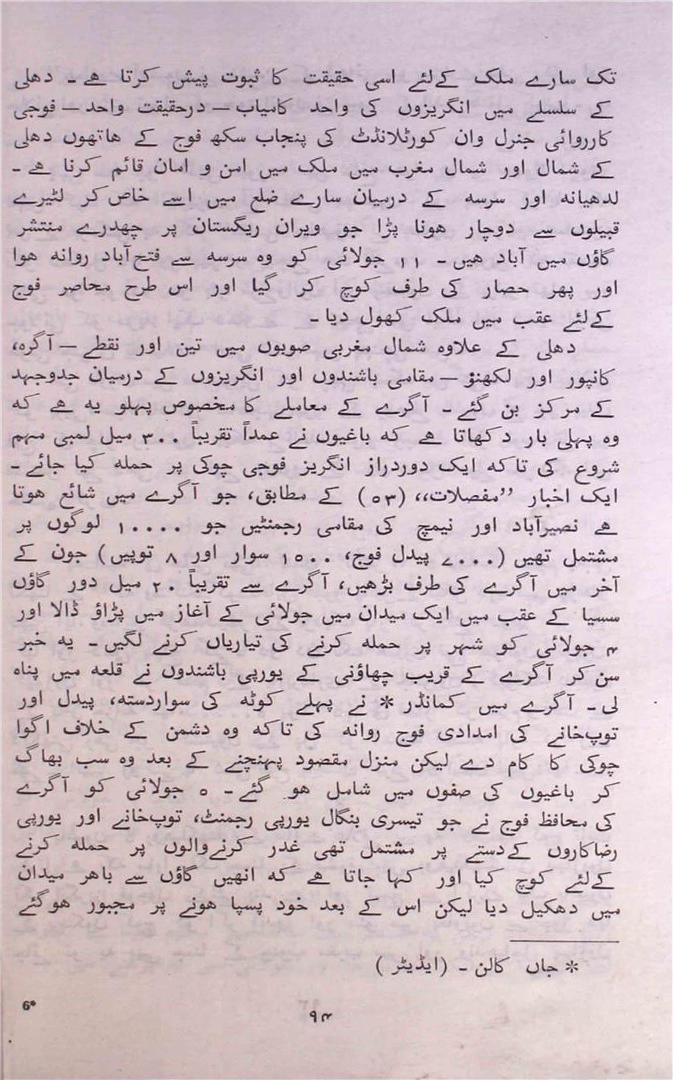 تک سارے ملک کےلئے اسی حقیقت کا ثبوت پیش کرتا ہے۔ دہلی
کے سلسلے میں انگریزوں کی واحد کامیاب — درحقیقت واحد — فوجی
کارروائی جنرل وان کورٹلانڈٹ کی پنجاب سکھ فوج کے ہاتھوں دہلی
کے شمال اور شمال مغرب میں ملک میں امن و امان قائم کرنا ہے۔
لدھیانہ اور سرسہ کے درمیان سارے ضلع میں اسے خاص کر لٹیرے
قبیلوں سے دوچار ہونا پڑا جو ویران ریگستان پر چھدرے منتشر
گاؤں میں آباد ہیں۔ ۱۱ جولائی کو وہ سرسہ سے فتح آباد روانہ ہوا
اور پھر حصار کی طرف کوچ کر گیا اور اس طرح محاصر فوج
کےلئے عقب میں ملک کھول دیا۔
دہلی کے علاوہ شمال مغربی صوبوں میں تین اور نقطے — آگرہ،
کانپور اور لکھنؤ — مقامی باشندوں اور انگریزوں کے درمیان جدوجہد
کے مرکز بن گئے۔ آگرے کے معاملے کا مخصوص پہلو یہ ہے کہ
وہ پہلی بار دکھاتا ہے کہ باغیوں نے عمداً تقریباً ۳۰۰ میل لمبی مہم
شروع کی تاکہ ایک دوردراز انگریز فوجی چوکی پر حملہ کیا جائے۔
ایک اخبار ”مفصلات،، (۵۳) کے مطابق، جو آگرے میں شائع ہوتا
ہے نصیرآباد اور نیمچ کی مقامی رجمنٹیں جو ۱۰۰۰۰ لوگوں پر
مشتمل تھیں (۷۰۰۰ پیدل فوج، ۱۵۰۰ سوار اور ۸ توپیں) جون کے
آخر میں آگرے کی طرف بڑھیں، آگرے سے تقریباً ۲۰ میل دور گاؤں
سسیا کے عقب میں ایک میدان میں جولائی کے آغاز میں پڑاؤ ڈالا اور
۴ جولائی کو شہر پر حملہ کرنے کی تیاریاں کرنے لگیں۔ یہ خبر
سن کر آگرے کے قریب چھاؤنی کے یورپی باشندوں نے قلعہ میں پناہ
لی۔ آگرے میں کمانڈر * نے پہلے کوٹہ کی سواردستہ، پیدل اور
توپ خانے کی امدادی فوج روانہ کی تاکہ وہ دشمن کے خلاف اگوا
چوکی کا کام دے لیکن منزل مقصود پہنچنے کے بعد وہ سب بھاگ
کر باغیوں کی صفوں میں شامل ہو گئے۔ ۵ جولائی کو آگرے
کی محافظ فوج نے جو تیسری بنگال یورپی رجمنٹ، توپ خانے اور یورپی
رضاکاروں کےدستے پر مشتمل تھی غدر کرنےوالوں پر حملہ کرنے
کےلئے کوچ کیا اور کہا جاتا ہے کہ انھیں گاؤں سے باہر میدان
میں دھکیل دیا لیکن اس کے بعد خود پسپا ہونے پر مجبور ہوگئے
* جاں کالن۔ (ایڈیٹر)
6*
۹۴